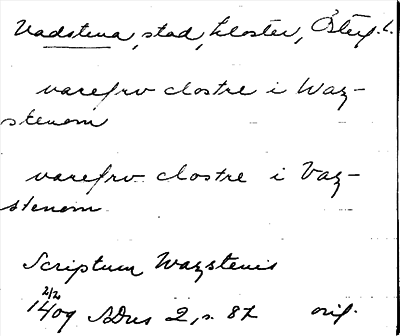 Vadstena, stad, kloster, Östg. l.
varefrv clostre i Waz-
stenom
varefrv clostre i Vaz-
stenom
Scriptum Wazstenis
2/2
1409 SDns 2, s. 87 orig.